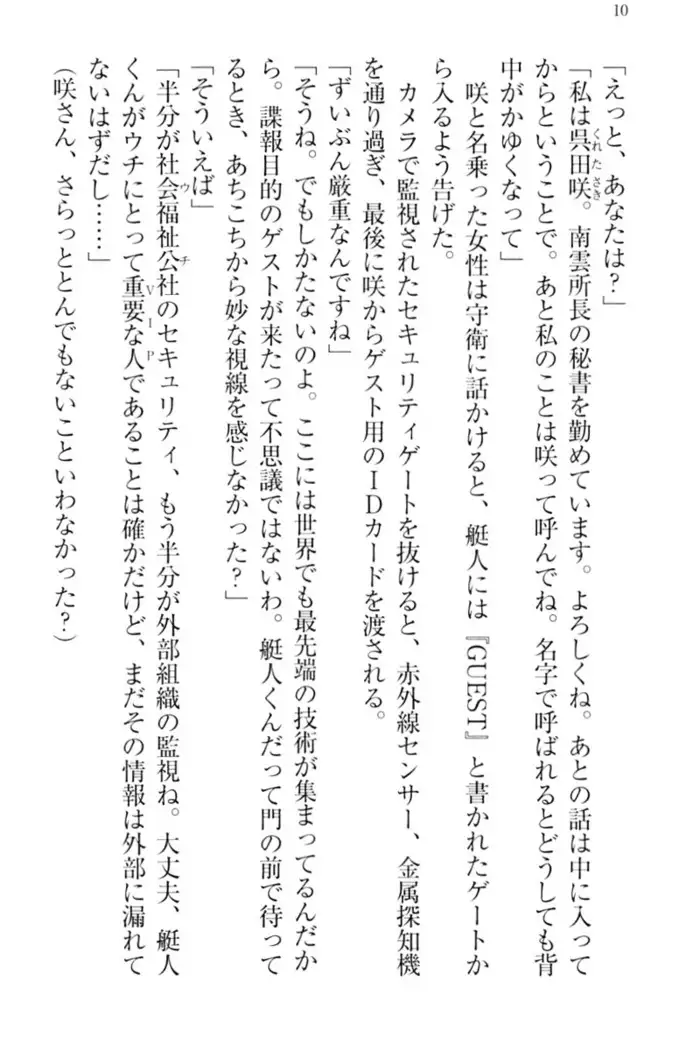 10
「えっと、あなたは？」
「私は呉田咲。南雲所長の秘書を勤めています。よろしくね。あとの話は中に入って
くれたさき
からということで。あと私のことは咲って呼んでね。名字で呼ばれるとどうしても背
中がかゆくなって」
　咲と名乗った女性は守衛に話かけると、艇人には『GUEST』と書かれたゲートか
ら入るよう告げた。
　カメラで監視されたセキュリティゲートを抜けると、赤外線センサー、金属探知機
を通り過ぎ、最後に咲からゲスト用のIDカードを渡される。
「ずいぶん厳重なんですね」
「そうね。でもしかたないのよ。ここには世界でも最先端の技術が集まってるんだか
ら。諜報目的のゲストが来たって不思議ではないわ。艇人くんだって門の前で待って
るとき、あちこちから妙な視線を感じなかった？」
「そういえば」
「半分が社会福祉公社のセキュリティ、もう半分が外部組織の監視ね。大丈夫、艇人
ウチ
くんがウチにとって重要な人であることは確かだけど、まだその情報は外部に漏れて
VIP
ないはずだし……」
（咲さん、さらっととんでもないこといわなかった？）